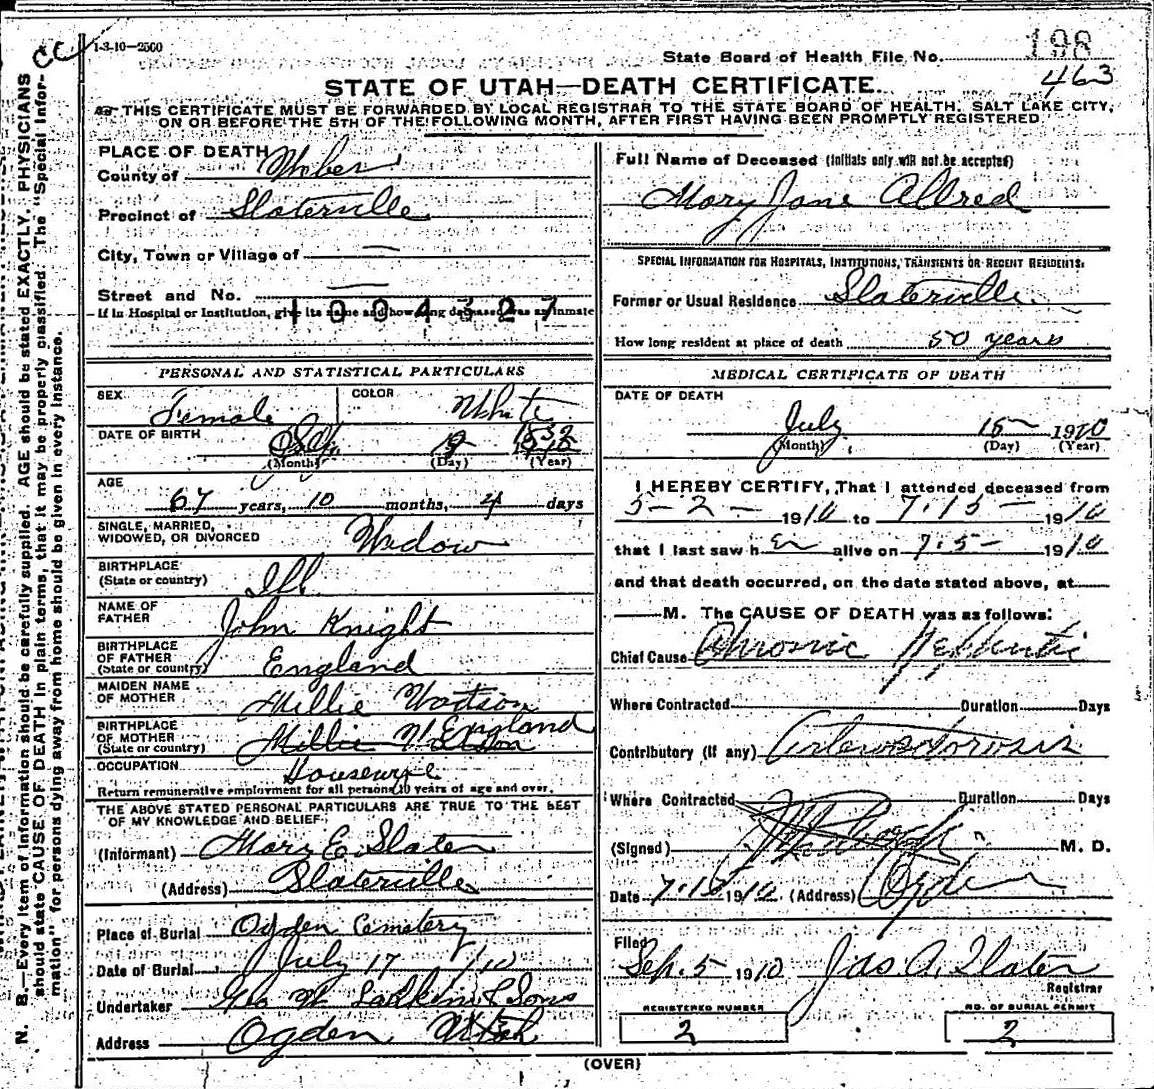 CC
1-3-10-2500
State Board of Health File No. 198
463
STATE OF UTAH—DEATH CERTIFICATE.
THIS CERTIFICATE MUST BE FORWARDED BY LOCAL REGISTRAR TO THE STATE BOARD OF HEALTH, SALT LAKE CITY,
ON OR BEFORE THE 5TH OF THE FOLLOWING MONTH, AFTER FIRST HAVING BEEN PROMPTLY REGISTERED
N. B.—Every item of information should be carefully supplied. AGE should be stated EXACTLY. PHYSICIANS
should state CAUSE OF DEATH in plain terms, that it may be properly classified. The "Special Infor-
mation" for persons dying away from home should be given in every instance.
PLACE OF DEATH
County of Weber
Precinct of Slaterville
City, Town or Village of —
Street and No. —
If in Hospital or Institution, give its name and how long deceased was an inmate
1004327
Full Name of Deceased (Initials only will not be accepted)
Mary Jane Allred
SPECIAL INFORMATION FOR HOSPITALS, INSTITUTIONS, TRANSIENTS OR RECENT RESIDENTS.
Former or Usual Residence Slaterville
How long resident at place of death 50 years
PERSONAL AND STATISTICAL PARTICULARS
SEX Female COLOR White
DATE OF BIRTH
(Month) (Day) (Year)
AGE
67 years, 10 months, 4 days
SINGLE, MARRIED,
WIDOWED, OR DIVORCED Widow
BIRTHPLACE
(State or country) Ill.
NAME OF
FATHER John Knight
BIRTHPLACE
OF FATHER
(State or country) England
MAIDEN NAME
OF MOTHER Millie Watson
BIRTHPLACE
OF MOTHER
(State or country) Millie Watson England
OCCUPATION Housewife
Return remunerative employment for all persons 10 years of age and over.
THE ABOVE STATED PERSONAL PARTICULARS ARE TRUE TO THE BEST
OF MY KNOWLEDGE AND BELIEF
(Informant) Mary E. Slater
(Address) Slaterville
Place of Burial Ogden Cemetery
Date of Burial July 17 /10
Undertaker Geo W Larkin & Sons
Address Ogden Utah
MEDICAL CERTIFICATE OF DEATH
DATE OF DEATH
July 15 1910
(Month) (Day) (Year)
I HEREBY CERTIFY, That I attended deceased from
5-2- 1910 to 7.15- 1910
that I last saw her alive on 7.5- 1910
and that death occurred, on the date stated above, at
M. The CAUSE OF DEATH was as follows:
Chief Cause Chronic Nephritis
Where Contracted Duration Days
Contributory (if any)
Where Contracted Duration Days
(Signed) M. D.
Date 7.15 1910. (Address) Ogden
Filed
Sep. 5 1910 Jas A. Slater
Registrar
REGISTERED NUMBER
2
NO. OF BURIAL PERMIT
2
(OVER)